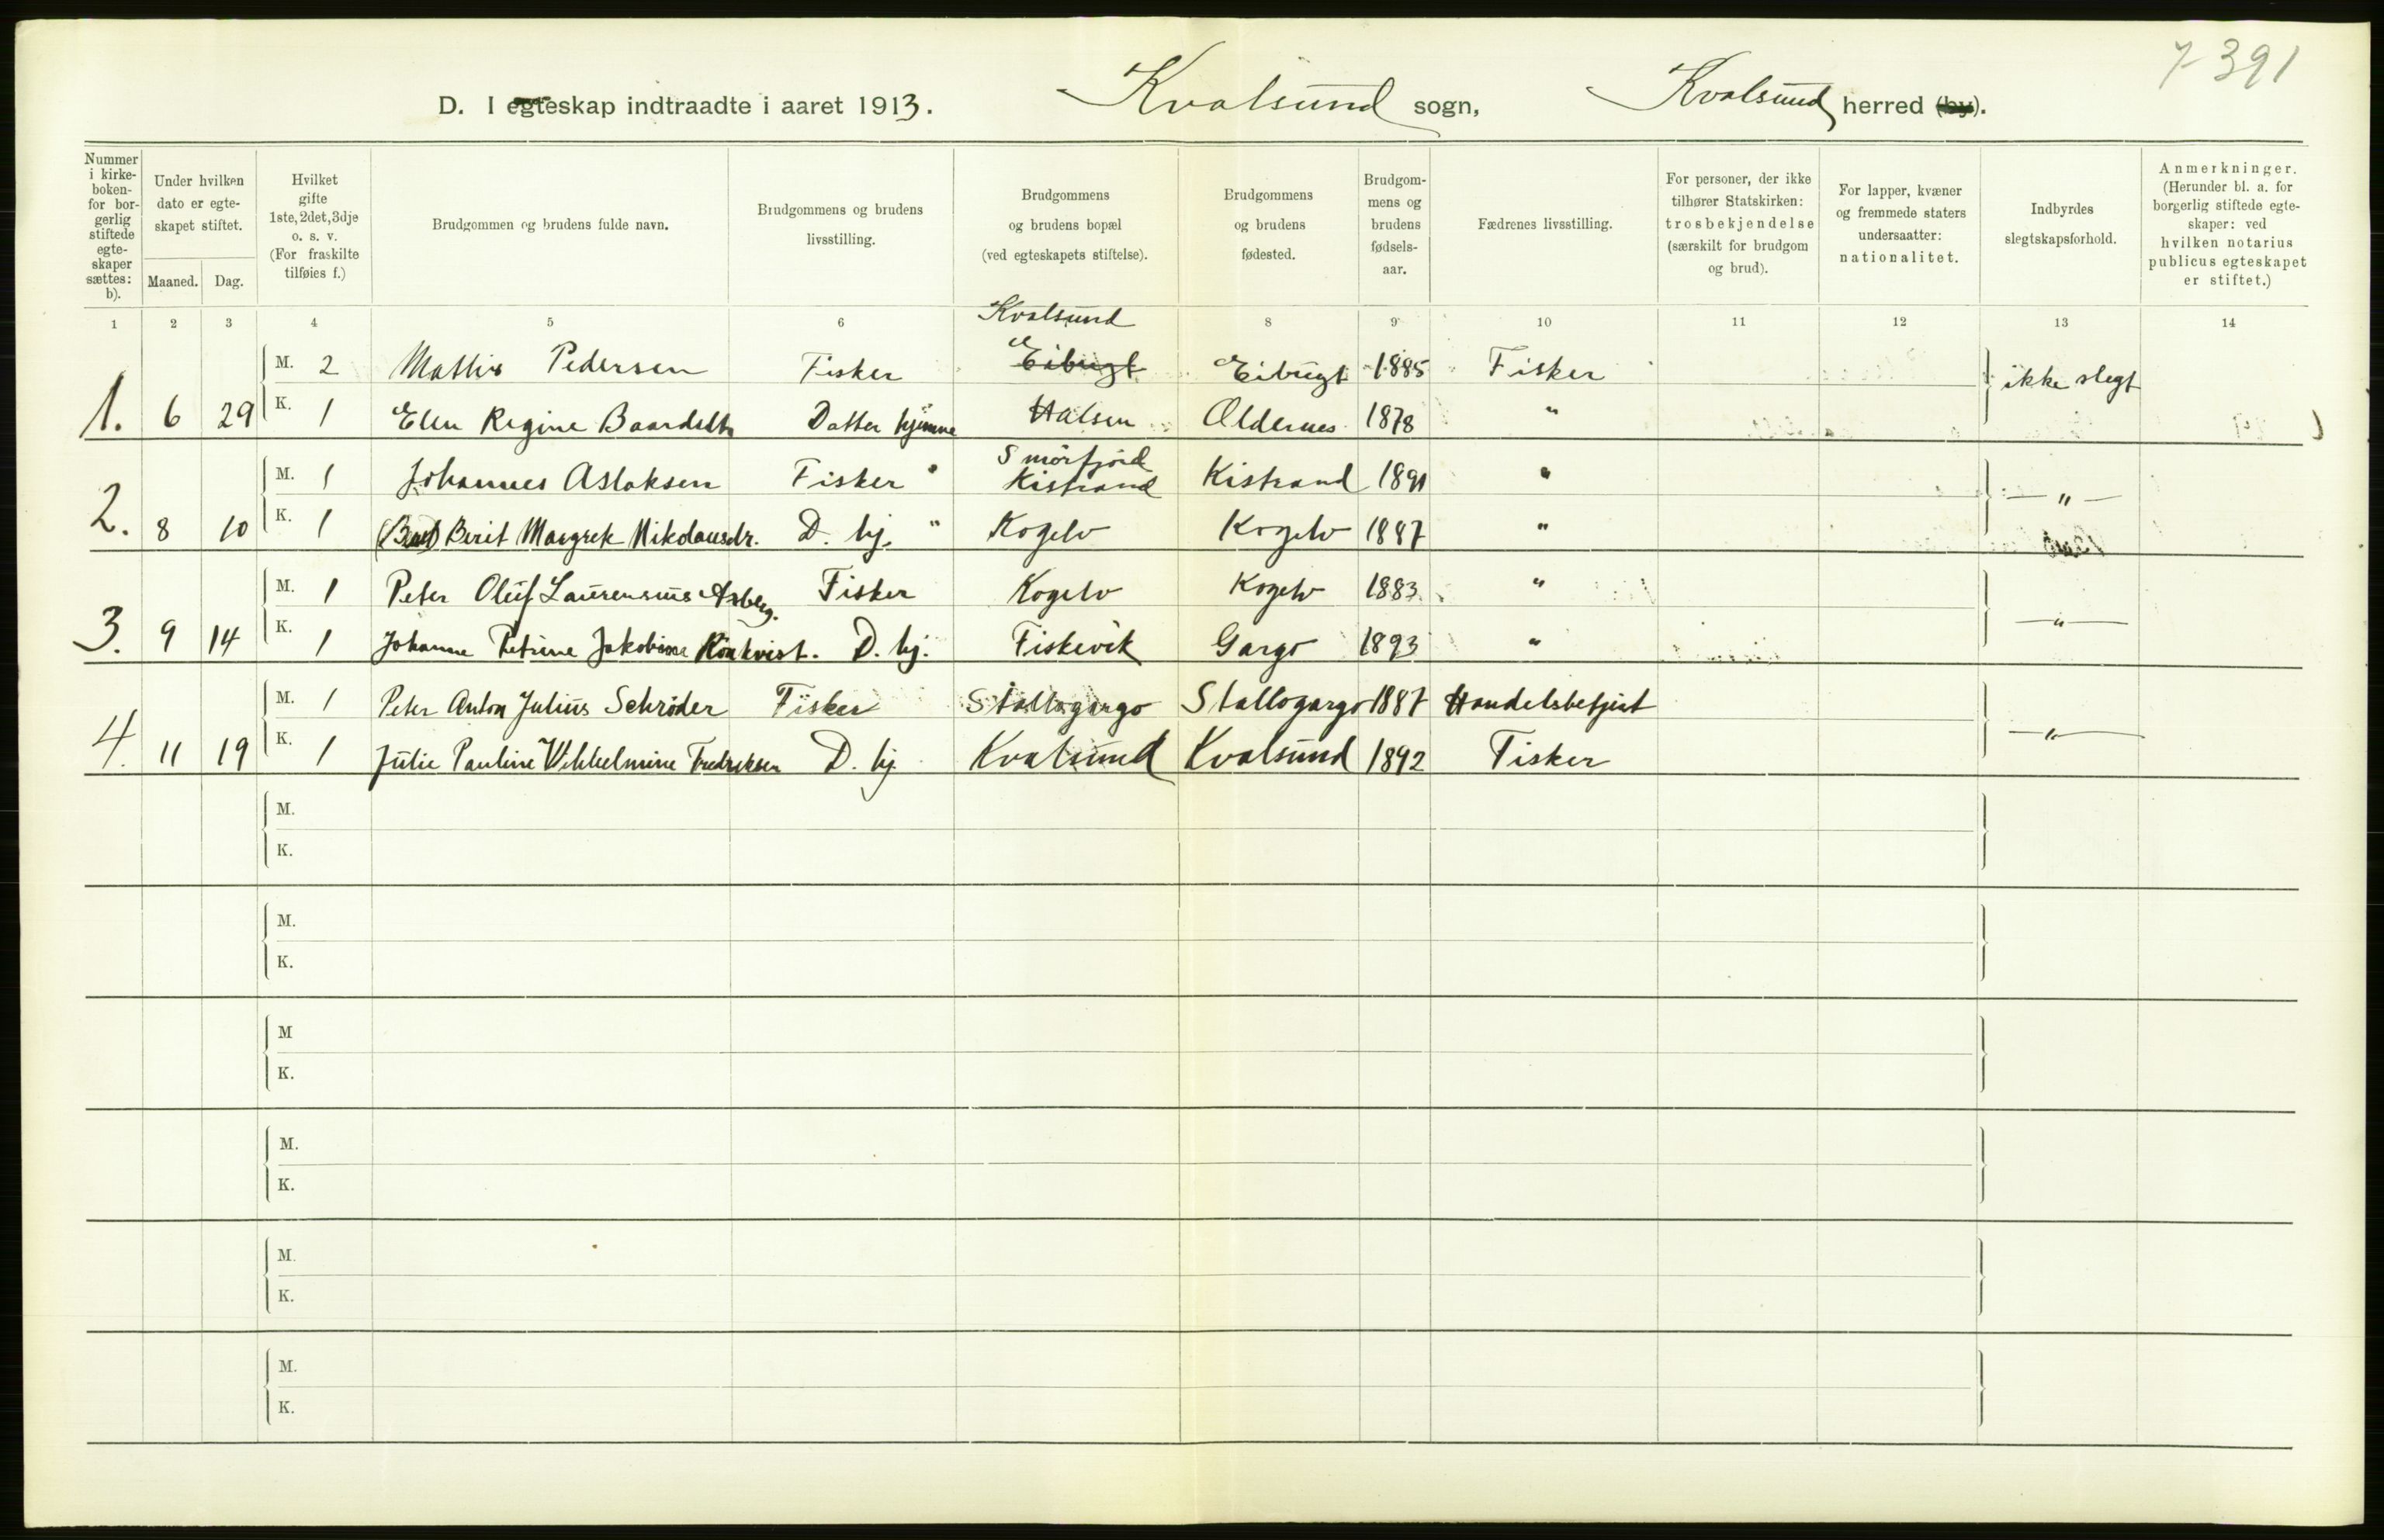 7-391
D. I egteskap indtraadte i aaret 1913. Kvalsund sogn, Kvalsund herred (by).
Nummer i kirke-boken- for bor-gerlig stiftede egte-skaper sættes: b).
Under hvilken dato er egte-skapet stiftet.
Maaned. Dag.
Hvilket gifte 1ste, 2det, 3dje o. s. v. (For fraskilte tilføies f.)
Brudgommen og brudens fulde navn.
Brudgommens og brudens livsstilling.
Brudgommens og brudens bopæl (ved egteskapets stiftelse).
Brudgommens og brudens fødested.
Brudgom-mens og brudens fødsels-aar.
Fædrenes livsstilling.
For personer, der ikke tilhører Statskirken: trosbekjendelse (særskilt for brudgom og brud).
For lapper, kvæner og fremmede staters undersaatter: nationalitet.
Indbyrdes slegtskapsforhold.
Anmerkninger. (Herunder bl. a. for borgerlig stiftede egte-skaper: ved hvilken notarius publicus egteskapet er stiftet.)
1 2 3 4 5 6 8 9 10 11 12 13 14
Kvalsund
M. 2 Mathis Pedersen Fisker Eibugt Eibugt 1885 Fisker ikke slegt
1. 6 29 K. 1 Elen Regine Baardsdtr Datter hjemme Halsen Oldernes 1878 "
Smörfjord
M. 1 Johannes Aslaksen Fisker " Kistrand Kistrand 1891 " — " —
2. 8 10 K. 1 Berit Margrete Nikolausdr. D. hj. " Kogelv Kogelv 1887 "
M. 1 Peter Oluf Laurensius Asberg. Fisker Kogelv Kogelv 1883 " — " —
3. 9 14 K. 1 Johanne Petrine Jakobine Rönkvist. D. hj. Fiskevik Gargo 1893 "
M. 1 Peter Anton Julius Schrøder Fisker Stallogargo Stallogargo 1887 Handelsbetjent — " —
4. 11 19 K. 1 Julie Pauline Vilhelmine Fredriksen D. hj Kvalsund Kvalsund 1892 Fisker
M.
K.
M.
K.
M
K.
M.
K.
M.
K.
M.
K.